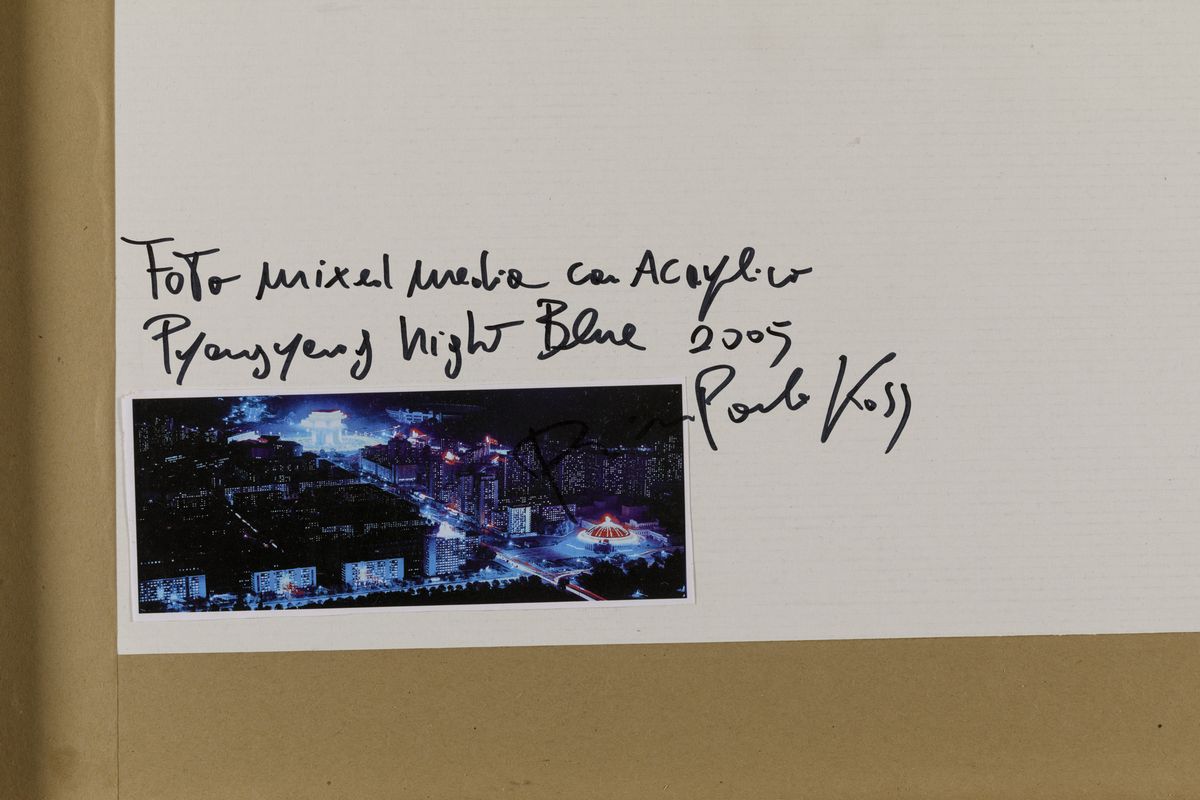 Foto mixed media con Acrylico
Pyongyang Night Blue 2005
Paolo Koss